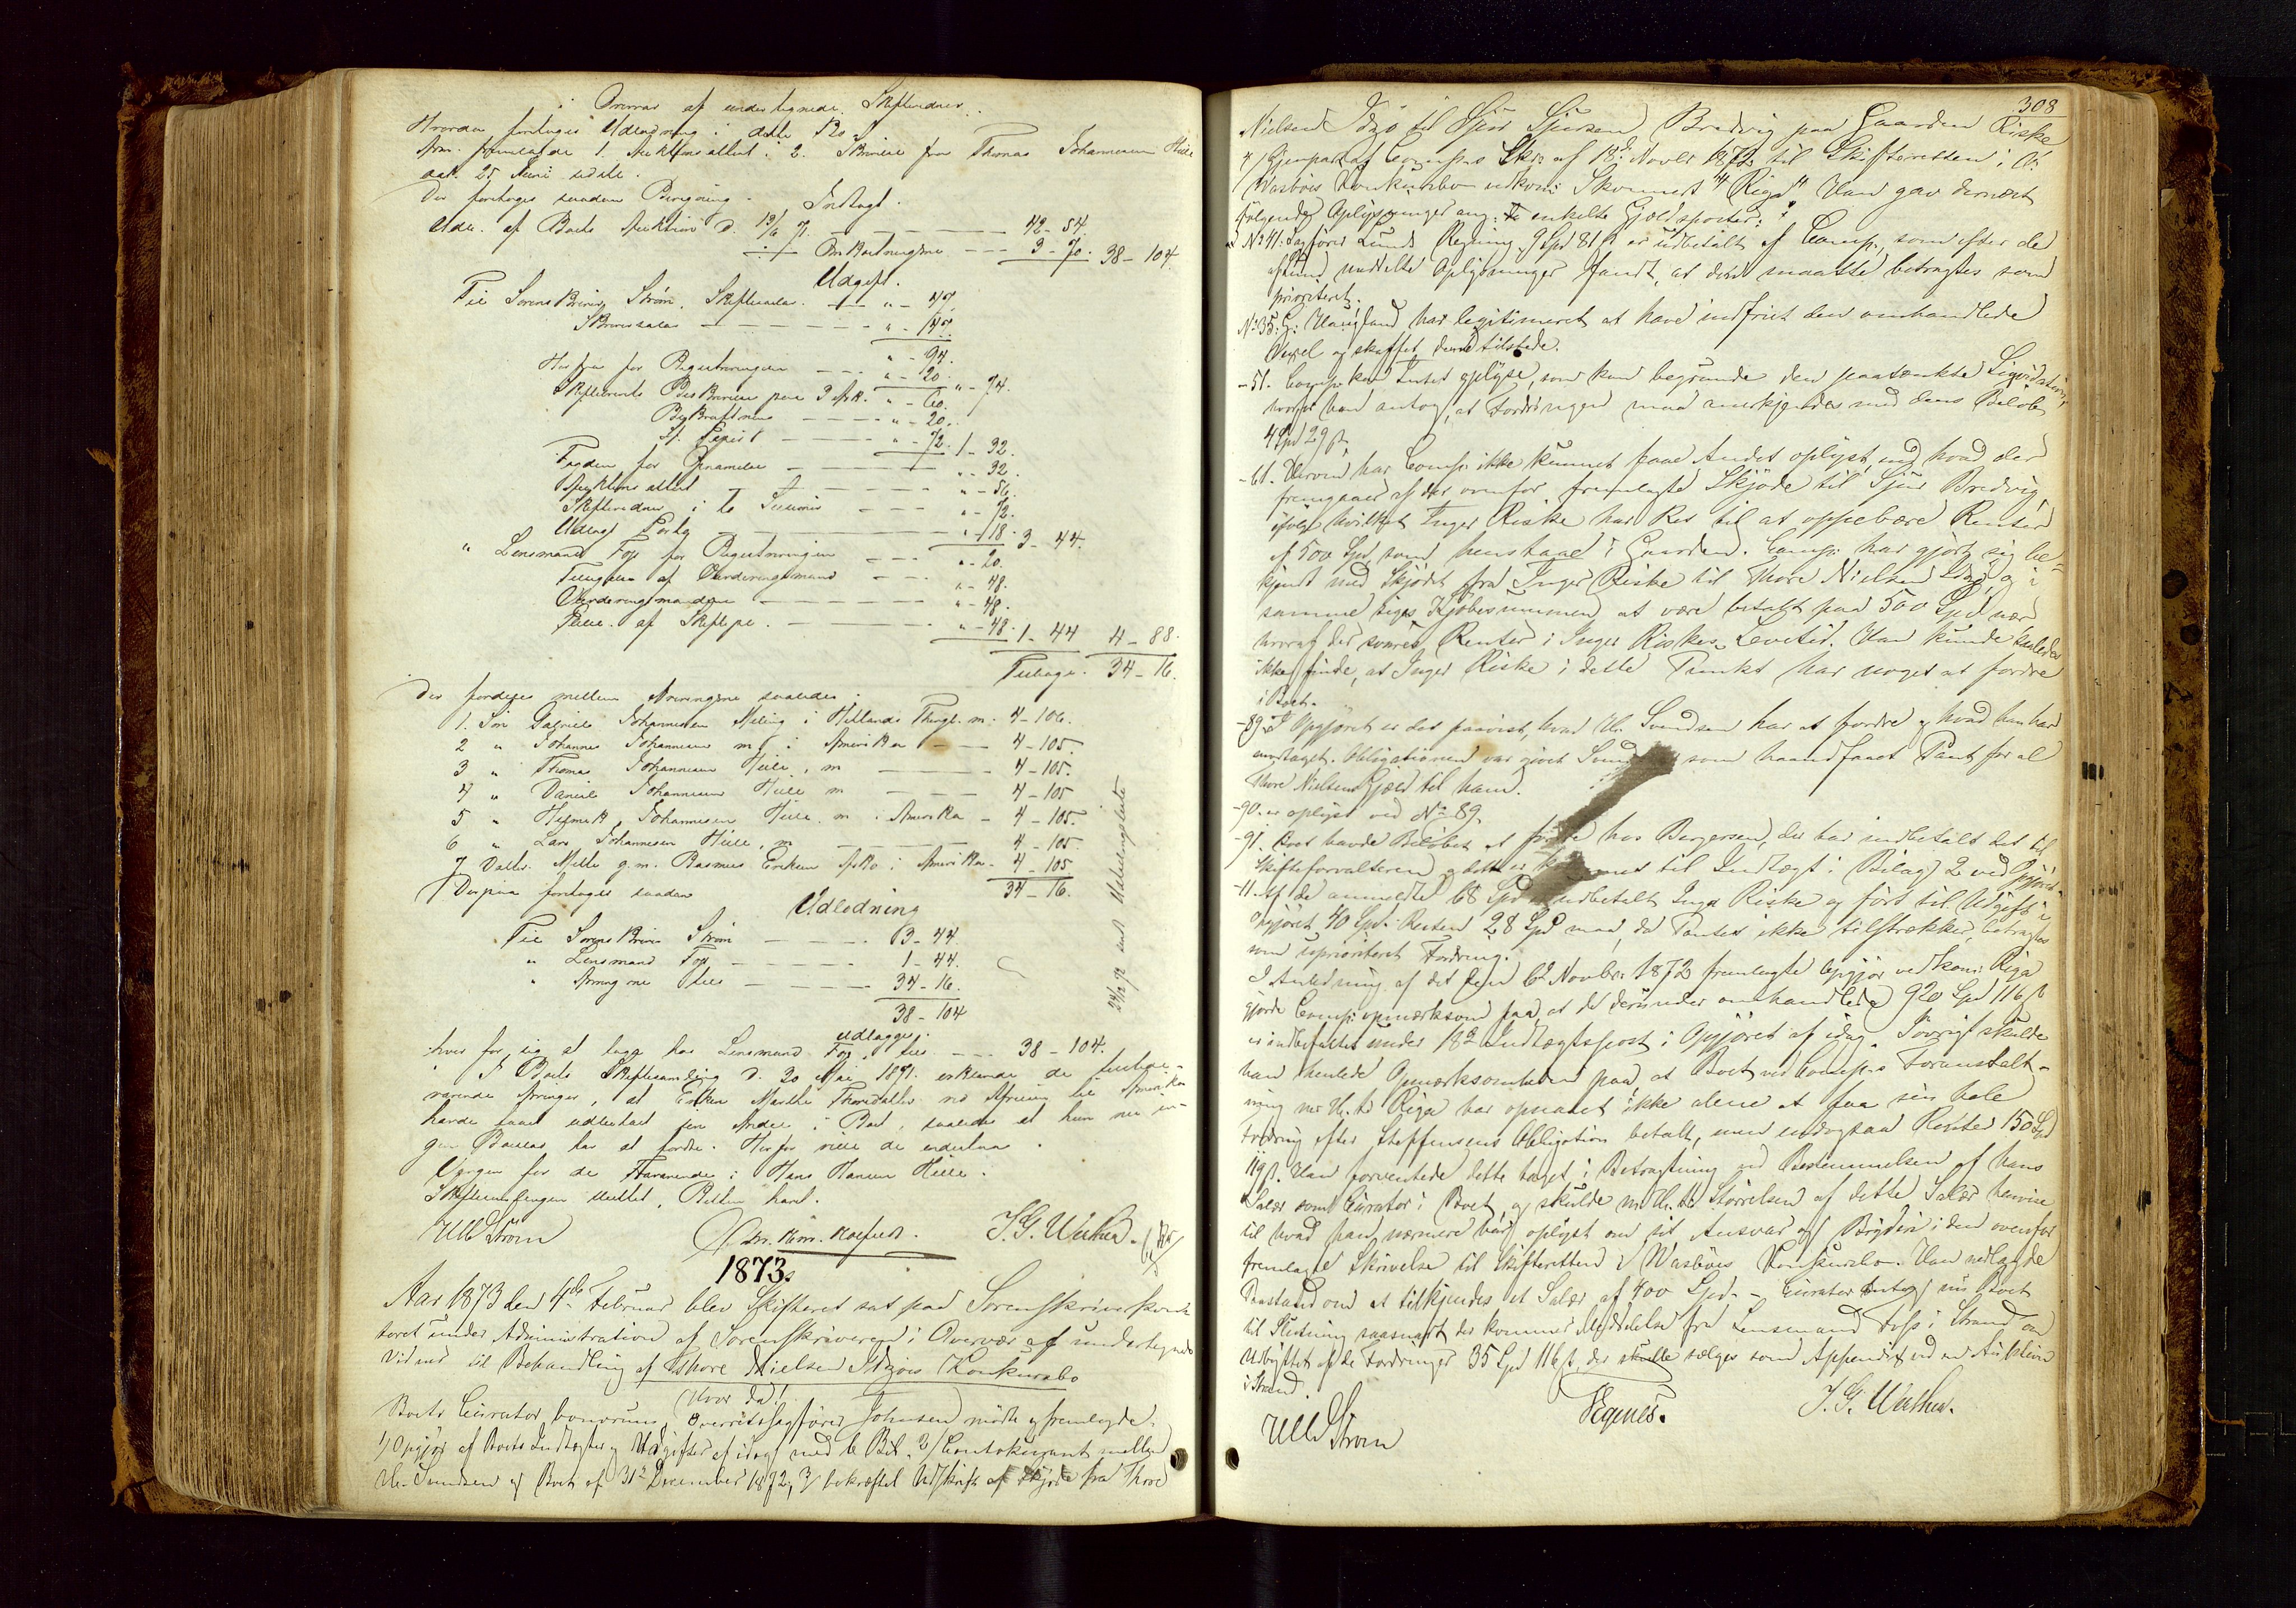 i Overvær af undertegnede Skiftevidner.
Hvorda foretoges Udlodning i dette Bo.
Adm. fremlagde 1. Auktionsattest. 2. Skrivelse fra Thomas Johannesen Hille
dat. 25 Juni sidstl.
Der foretoges saadan Beregning.
Indtægt.
Udk. af Boets Auktion d. 13/6 71. — 42 - 54.
÷ Omkostningerne — 3 - 70. 38 - 104.
Udgift.
Til Sorenskriver Strøm, Skiftesalær. — " - 47.
Skriversalær — " - 47.
" - 94.
Herfra for Registreringen — " - 20. " - 74.
Skifterettens Beskrivelse paa 3 Ark. " - 60.
Bekræftelse — " - 20.
St. Papir — " - 72. 1 - 32.
Fogden for — " - 32.
Auktionsattest — " - 56.
Skiftevidner i to Sessioner — " - 72.
Udlagt Porto — " - 18. 3 - 44.
" Lensmand Foss for Registreringen — " - 20.
af Vurderingsmænd — " - 48.
Vurderingsmændene — " - 48.
af Skiftepr. — " - 48. 1 - 44 4 - 88.
Tilbage 34 - 16.
Der fordeles mellem Arvingerne saaledes:
1. Søn Gabriel Johannesen Meling i Hetlands Thingl. m. 4 - 106.
2 " Johannes Johannesen m. i Amerika — 4 - 105.
3 " Thomas Johannesen Hille, m — 4 - 105.
4 " Daniel Johannesen Hille m — 4 - 105
5 " Helmik Johannesen Hille. m. i Amerika - 4 - 105.
6 " Lars Johannesen Hille, m — 4 - 105
7 Datter Malle g.m. Rasmus Eriksen Asko i Amerika - 4 - 105
34 - 16.
Derpaa foretoges saadan
Udlodning
Til Sorenskriver Strøm — 3 - 44.
" Lensmand Foss — 1 - 44.
" Arvingerne — 34 - 16.
38 - 104
udlægges:
hver for sig at tage hos Lensmand Foss — 38 - 104.
I Boets Skiftesamling d. 20 Mai 1871. erklærede de tilstede-
værende Arvinger, at Enken Marthe Thoresdatter ved Afreisen til Amerika
havde faaet udbetalt sin Andel i Boet, saaledes at hun nu in-
gen har at fordre. Herfor ville de indestaa.
Værgen for de Fraværende: Hans Hansen Hille.
Skiftesamlingen sluttet, Retten hævet.
Ulb Strøm J. G. Weihen.
1873.
Aar 1873 den 4de Februar blev Skifteret sat paa Sorenskriverkon-
toret under Administration af Sorenskriveren i Overvær af undertegnede
Vidner til Behandling af Thore Nielsen Idsøes Konkursbo
Hvor da!
Boets Curator bonorum, Overretssagfører Johnsen mødte og fremlagde:
1/ Opgjør af Boets Indtægter og Udgifter af idag med 6 Bil. 2/ Contokurant mellem
Hr. Svendsen og Boet af 31te December 1872, 3/ bekræftet Udskrift af Skjøde fra Thore
308
Nielsen Idsø til Sjur Sjursen Bredvig paa Gaarden Riske
4/ Gjenpart af Comp.s Skr. af 18de Novbr 1872 til Skifteretten i O.
Wasbøes Konkursbo vedkom. Skonnert "Riga". Han gav dernæst
følgende Oplysninger ang. de enkelte Gjældsposter:
ad No 41. Sagfører Lunds Regning 9 Spd 81 ß er udbetalt af Comp., som efter de
af Lund meddelte Oplysninger fandt, at den maatte betragtes som
prioriteret.
No 35. G. Haugland har legitimeret at have indfriet den omhandlede
Vexel og skaffet denne tilstede.
- 51. Comp. kan Intet oplyse, som kan begrunde den paatænkte Ligvidation,
hvorfor han antog, at Fordringen maa anerkjendes med dens Beløb
4 Spd 29 ß
- 61. Herom har Comp. ikke kunnet faae Andet oplyst, end hvad der
fremgaaer af det ovenfor fremlagte Skjøde til Sjur Bredvig,
ifølge hvilket Inger Riske har Ret til at oppebære Renter
af 500 Spd, som henstaae i Gaarden. Comp. har gjort sig be-
kjendt med Skjødet fra Inger Riske til Thore Nielsen Idsø, og i
samme siges Kjøbesummen at være betalt paa 500 Spd nær
hvoraf der svares Renter i Inger Riskes Levetid. Han kunde saaledes
ikke finde, at Inger Riske i dette Punkt har noget at fordre
i Boet.
- 89. I Opgjøret er det paavist, hvad Hr. Svendsen har at fordre og hvad han har
modtaget. Obligationen var givet Svendsen som haandfaaet Pant for al
Thore Nielsens Gjæld til ham.
- 90. er oplyst ved No 89.
- 91. Boet havde Beløbet at fordre hos Bergersen, der har indbetalt det til
Skifteforvalteren og dette er kommet til Indtægt i Bilag 2 ved Opgjøret.
- 11. Af de anmeldte 68 Spd er udbetalt Inger Riske og ført til Udgift i
Opgjøret 40 Spd. Resten 28 Spd maa, da Pantet ikke tilstrækker, betragtes
som uprioriteret Fordring.
I Anledning af det den 6te Novbr. 1872 fremlagte Opgjør vedkom. Riga
gjorde Comp. opmærksom paa, at de derunder omhandlede 920 Spd 116 ß
er indbefattet under 18de Indtægtspost i Opgjøret af idag. Iøvrigt skulde
han henlede Opmærksomheden paa, at Boet ved Comp.s Foranstalt-
ning m. H. t. Riga har opnaaet ikke alene at faa sin hele
Fordring efter Steffensens Obligation betalt, men endogsaa Renter 150 Spd
119 ß. Han forventede dette taget i Betragtning ved Bestemmelsen af hans
Salær som Curator i Boet, og skulde m. H. t. Størrelsen af dette Salær henvise
til hvad han nærmere har oplyst om sit Ansvar og Byrder i den ovenfor
fremlagte Skrivelse til Skifteretten i Wasbøes Konkursbo. Han nedlagde
Paastand om at tilkjendes et Salær af 400 Spd. - Curator antog nu Boet
til Slutning saasnart der kommer Meddelelse fra Lensmand Foss i Strand om
Udbyttet af de Fordringer 35 Spd 116 ß, der skulle sælges som Appendix ved en Auktion
i Strand.
Ulb Strøm Egenes. J. G. Weihen.